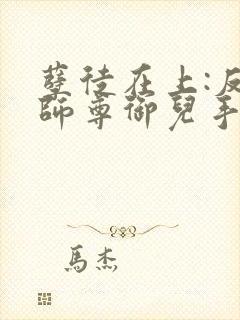 孽徒在上:反
師尊御兒手
馬杰